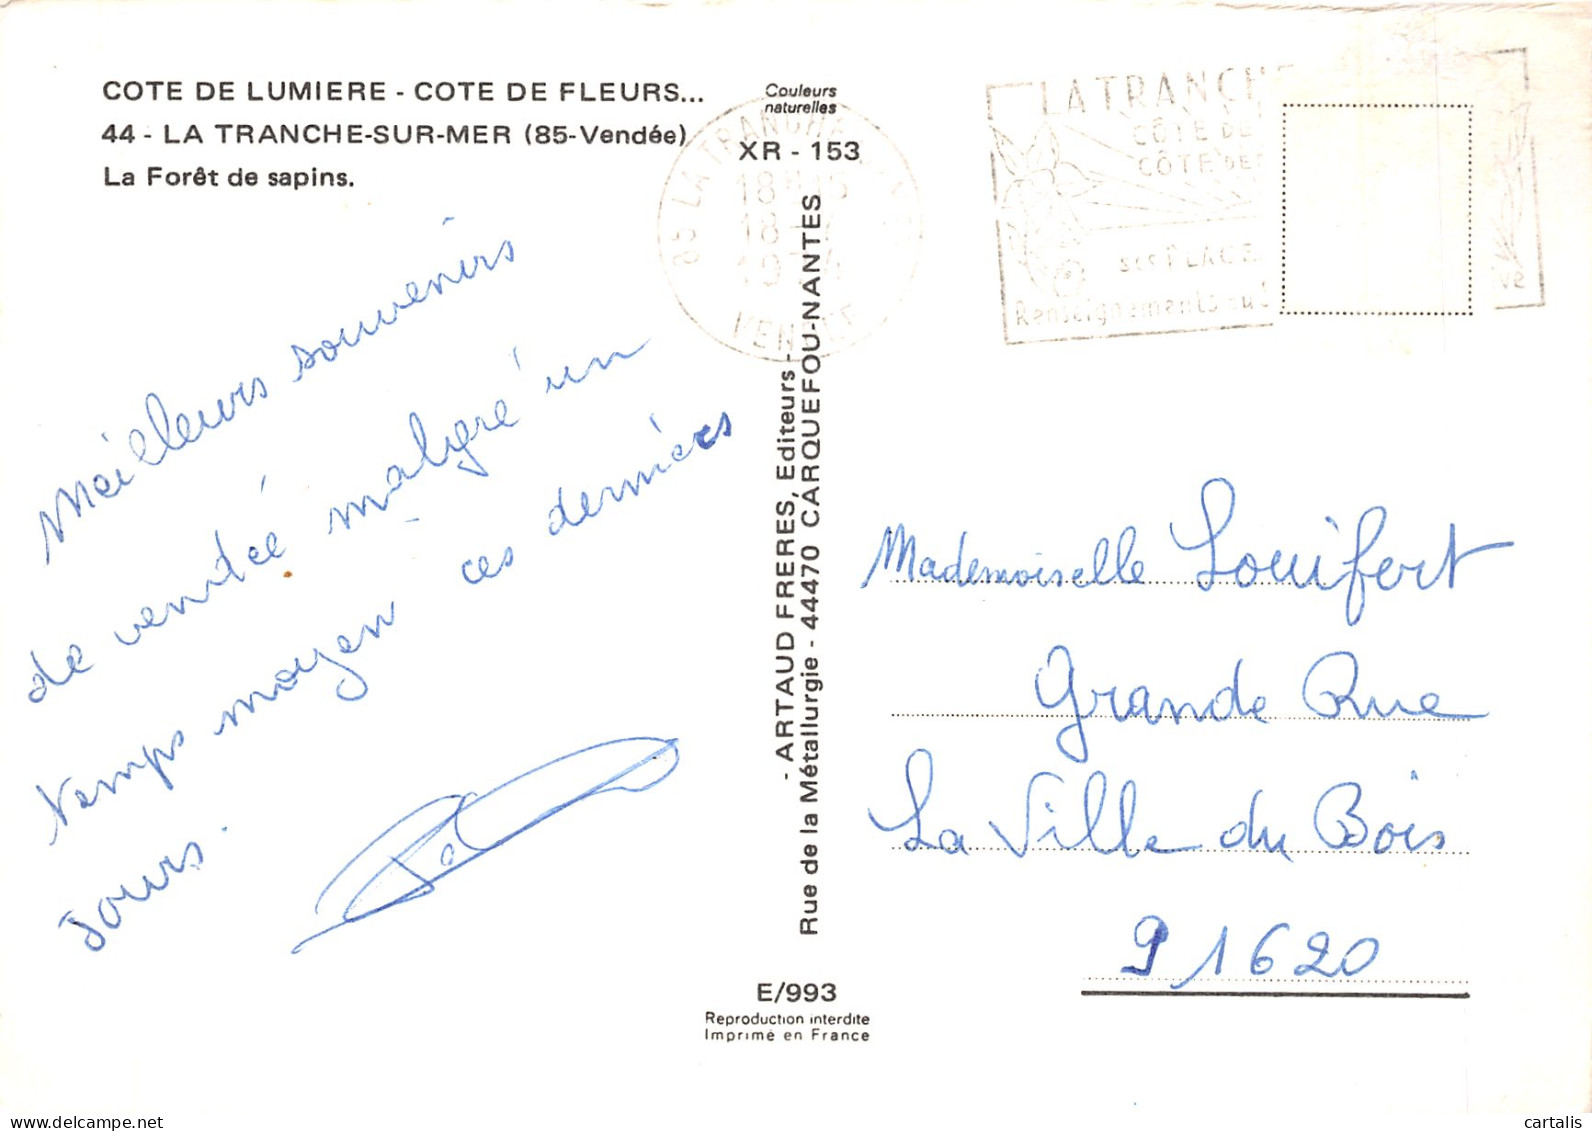 COTE DE LUMIERE - COTE DE FLEURS...
44 - LA TRANCHE-SUR-MER (85-Vendée)
La Forêt de sapins.
Couleurs
naturelles
XR - 153
Meilleurs souvenirs
de vendée malgré un
temps moyen ces derniers
Jours.
- ARTAUD FRERES, Editeurs -
Rue de la Métallurgie - 44470 CARQUEFOU-NANTES
E/993
Reproduction interdite
Imprimé en France
85 LA TRANCHE
18
19
VENDEE
LA TRANCHE
CÔTE DE
CÔTE DE
PLAGE
Renseignements au
Mademoiselle Louifert
Grande Rue
La Ville du Bois
91620
cartalis
www.delcampe.net